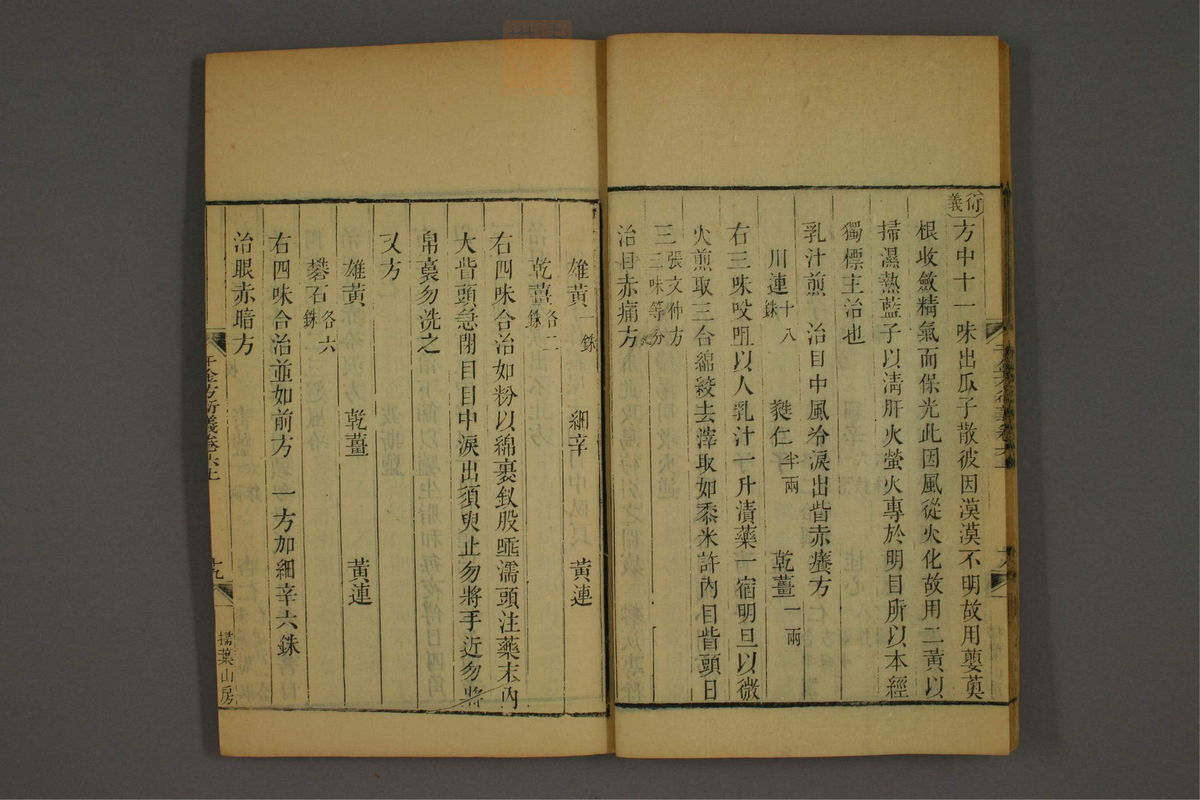 衍義 方中十一味出瓜子散彼因漠漠不明故用蔓荑
根收斂精氣而保光此因風從火化故用二黃以
掃濕熱藍子以清肝火螢火專於明目所以本經
獨標主治也
乳汁煎 治目中風冷淚出眥赤癢方
川連十八銖 蕤仁半兩 乾薑一兩
右三味㕮咀以人乳汁一升漬藥一宿明旦以微
火煎取三合綿絞去滓取如黍米許內目眥頭日
三 張文仲方三味等分
治目赤痛方
千金方衍義卷六上
十八
雄黃一銖 細辛 黃連
乾薑各二銖
右四味合治如粉以綿裹釵股唾濡頭注藥末內
大眥頭急閉目目中淚出須臾止勿將手近勿將
帛裛勿洗之
又方
雄黃 乾薑 黃連
礬石各六銖
右四味合治並如前方 一方加細辛六銖
治眼赤暗方
千金方衍義卷六上
十九
掃葉山房